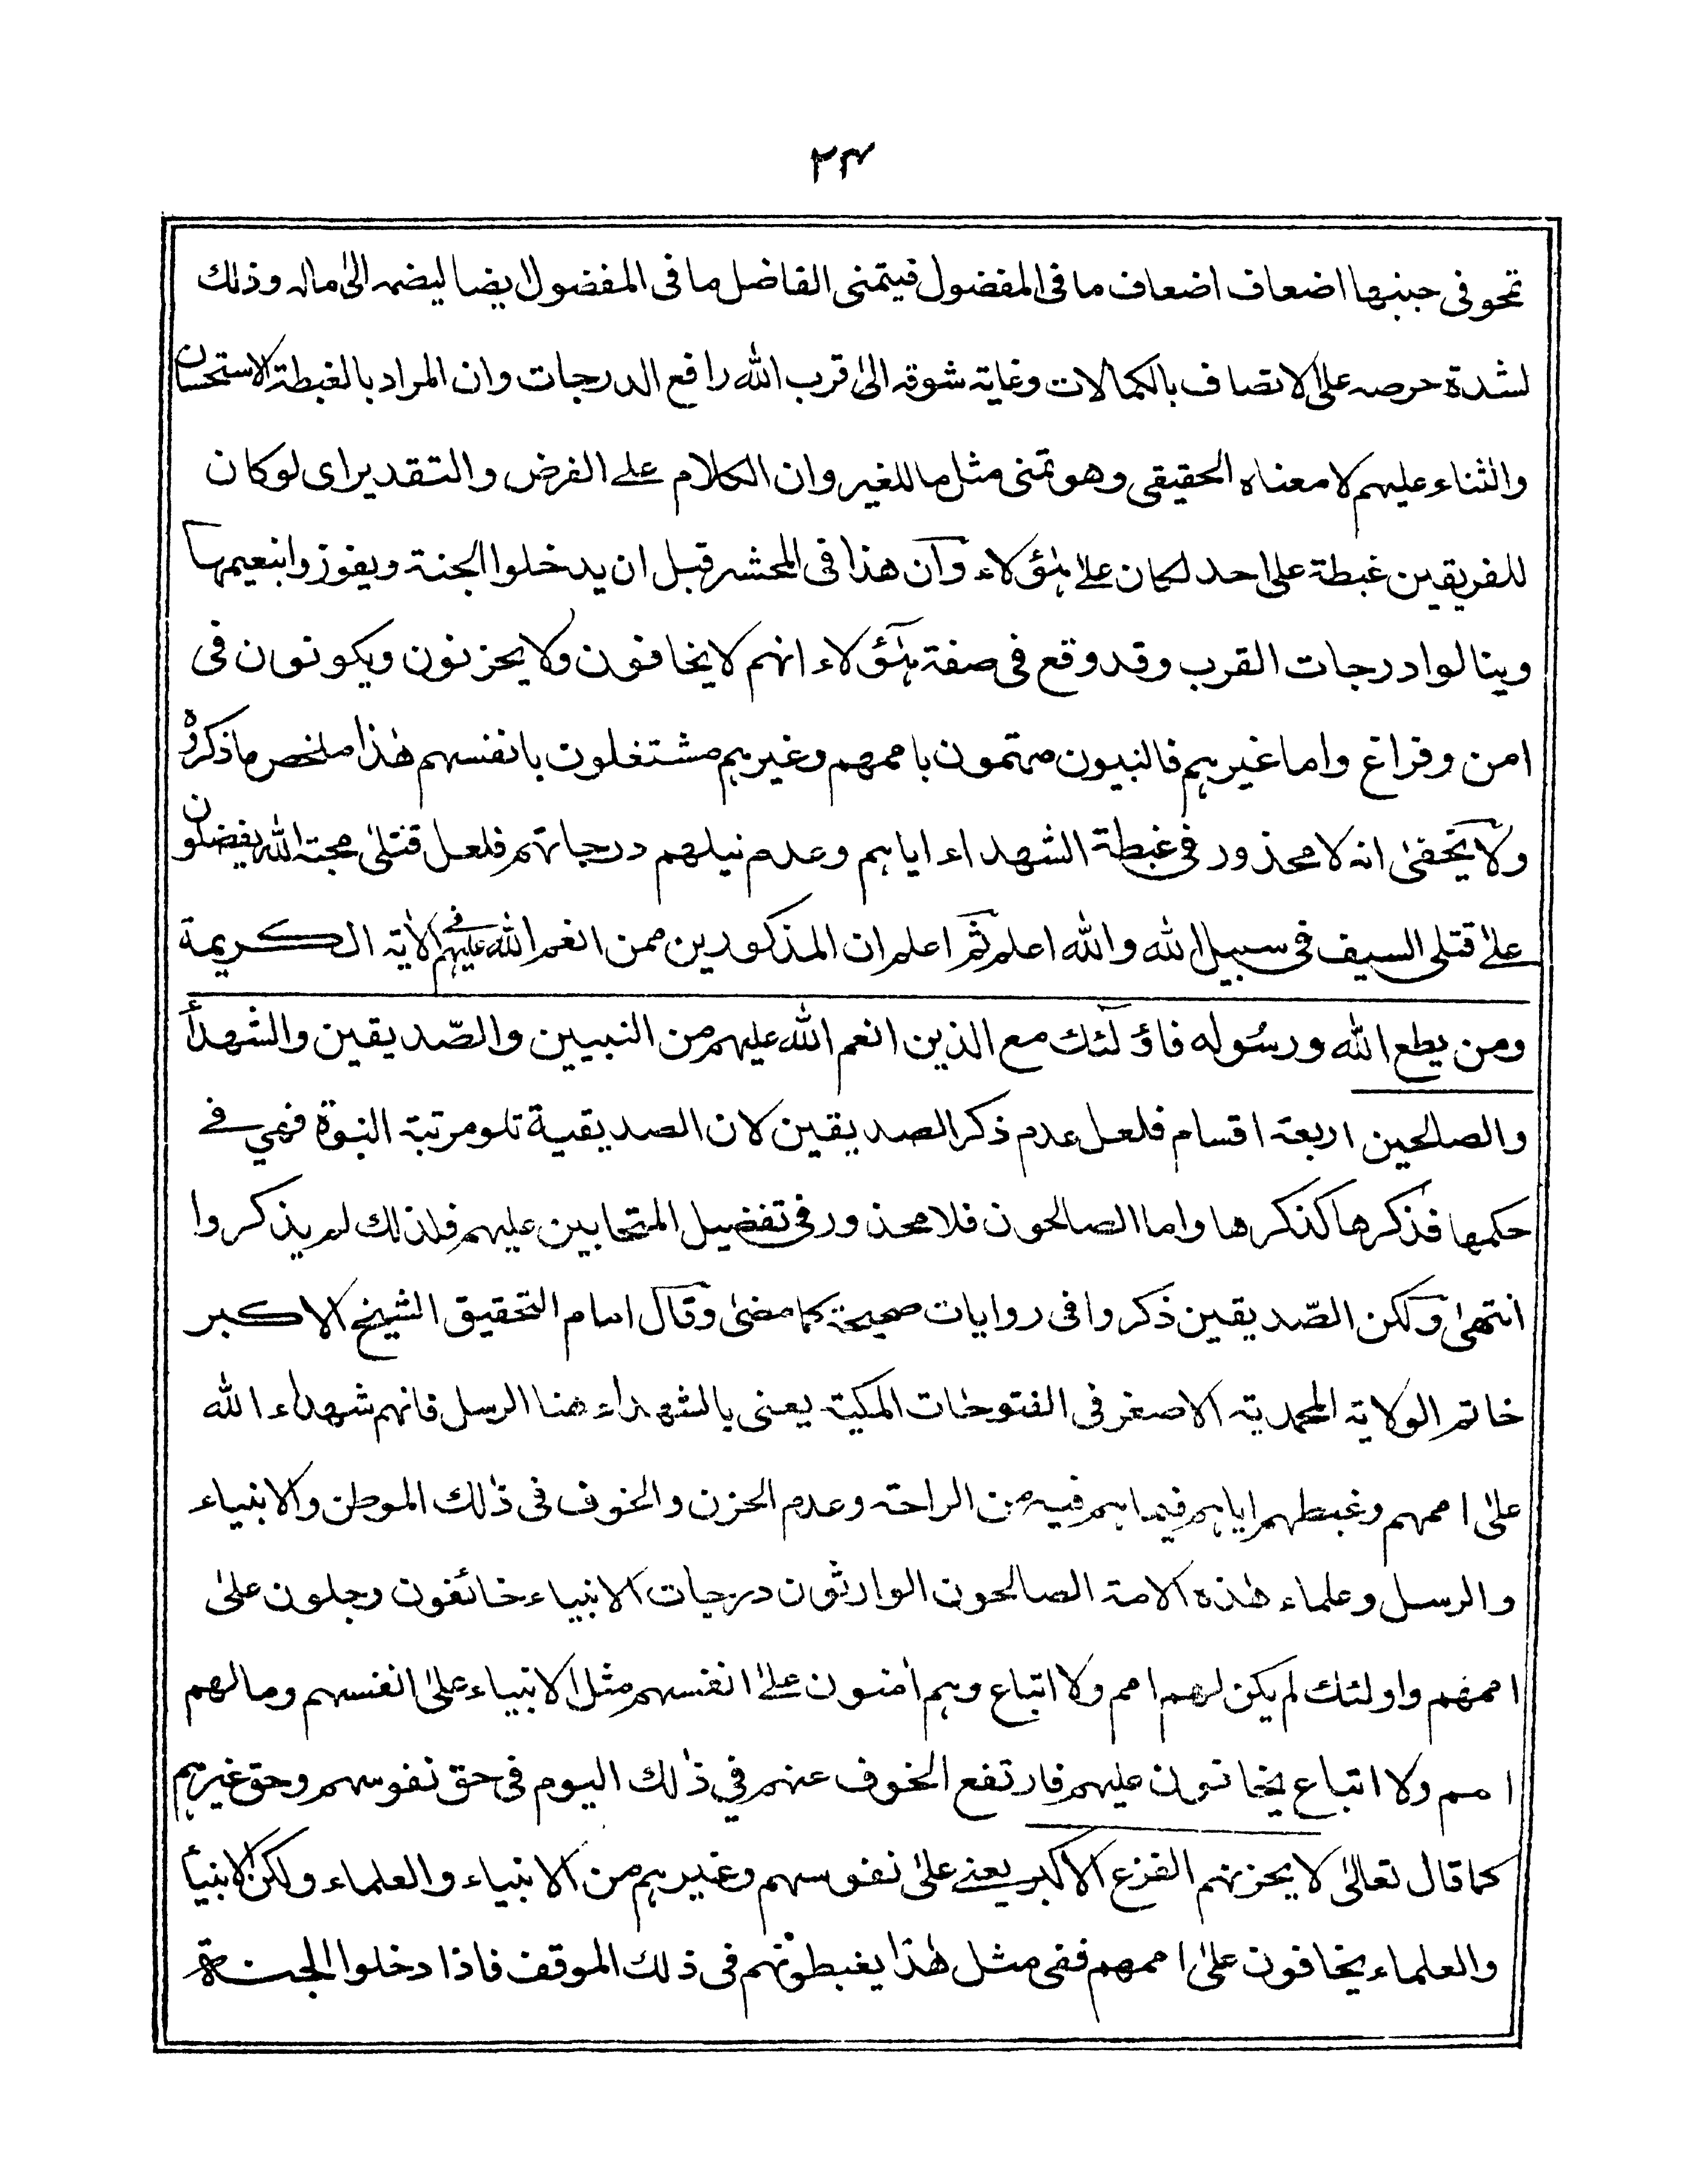 ٢٤
تمحو فى جنبها اضعاف اضعاف ما فى المفضول فيتمنى الفاضل ما فى المفضول ايضا ليضمه الىٰ ماله وذلك
لشدة حرصه على الاتصاف بالكمالات وغاية شوقه الىٰ قرب الله رافع الدرجات وان المراد بالغبطة الاستحسان
والثناء عليهم لا معناه الحقيقى وهو تمنى مثل ما للغير وان الكلام على الفرض والتقدير اى لو كان
للفريقين غبطة على احد لكان علىٰ هٰؤلاء وان هذا فى المحشر قبل ان يدخلوا الجنة ويفوزوا بنعيمها
وينالوا درجات القرب وقد وقع فى صفة هٰؤلاء انهم لا يخافون ولا يحزنون ويكونون فى
امن وفراغ واما غيرهم فالنبيون مهتمون باممهم وغيرهم مشتغلون بانفسهم هٰذا ملخص ما ذكروه
ولا يخفىٰ انه لا محذور فى غبطة الشهداء اياهم وعدم نيلهم درجاتهم فلعل قتلىٰ محبة الله يفضلون
علىٰ قتلى السيف فى سبيل الله والله اعلم ثم اعلم ان المذكورين ممن انعم الله عليهم فى الاٰية الكريمة
ومن يطع الله ورسُوله فاؤلٓئك مع الذين انعم الله عليهم من النبيين والصّديقين والشهدأ
والصلحين اربعة اقسام فلعل عدم ذكر الصديقين لان الصديقية تلو مرتبة النبوّة فهي فى
حكمها فذكرها كذكرها واما الصالحون فلا محذور فى تفضيل المتحابين عليهم فلذلك لم يذكروا
انتهىٰ ولكن الصّديقين ذكروا فى روايات صحيحة كما مضىٰ وقال امام التحقيق الشيخ الاكبر
خاتم الولاية المحمدية الاصغر فى الفتوحات المكية يعنى بالشهداء هنا الرسل فانهم شهداء الله
علىٰ اممهم وغبطهم اياهم فيما هم فيه من الراحة وعدم الحزن والخوف فى ذٰلك الموطن والانبياء
والرسل وعلماء هٰذه الامة الصالحون الوارثون درجات الانبياء خائفون وجلون علىٰ
اممهم واولئك لم يكن لهم امم ولا اتباع وهم اٰمنون علىٰ انفسهم مثل الانبياء علىٰ انفسهم ومالهم
امم ولا اتباع يخافون عليهم فارتفع الخوف عنهم في ذٰلك اليوم فى حق نفوسهم وحق غيرهم
كما قال تعالىٰ لا يحزنهم الفزع الاكبر يعنى علىٰ نفوسهم وغيرهم من الانبياء والعلماء ولكن الانبيأ
والعلماء يخافون علىٰ اممهم ففى مثل هٰذا يغبطونهم فى ذلك الموقف فاذا دخلوا الجنة